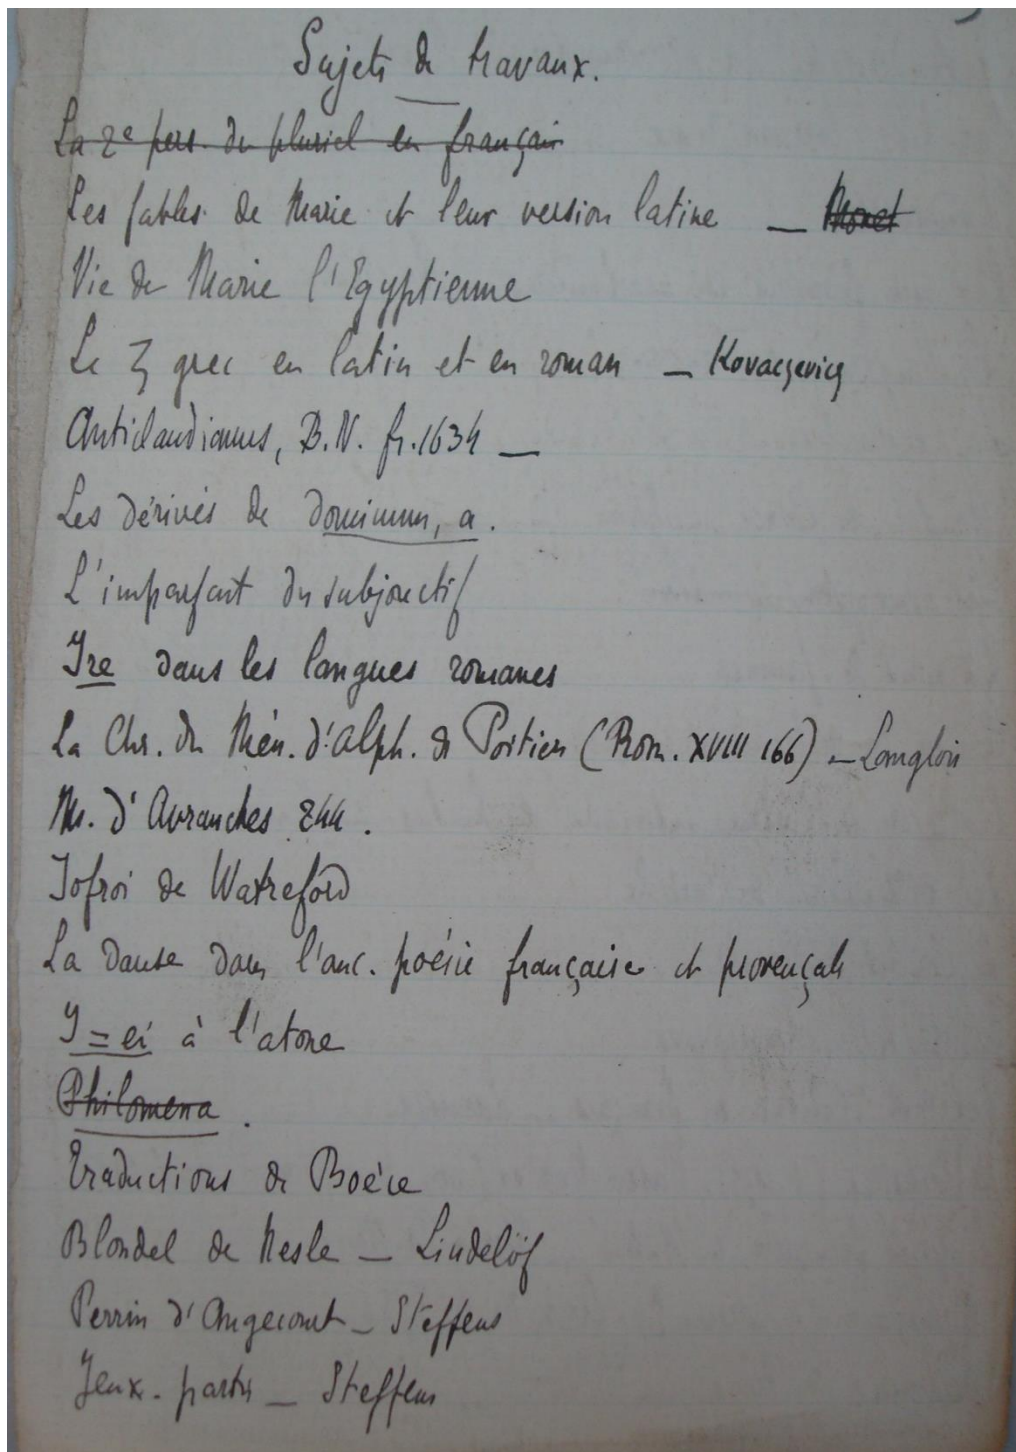 Sujets de travaux.
La 2e pers. du pluriel en français
Les fables de Marie et leur version latine — Monet
Vie de Marie l'Egyptienne
Le ζ grec en latin et en roman — Kovacsevics
Anticlaudianus, B.N. fr. 1634 —
Les dérivés de dominum, a.
L'imparfait du subjonctif
Ire dans les langues romanes
La Chr. du Mén. d'Alph. de Poitiers (Rom. XVIII 166) — Langlois
Ms. d'Avranches 244.
Jofroi de Watreford
La danse dans l'anc. poésie française et provençale
I = ei à l'atone
Philomena.
Traductions de Boèce
Blondel de Nesle — Lindelöf
Perrin d'Angecourt — Steffens
Jeux-partis — Steffens